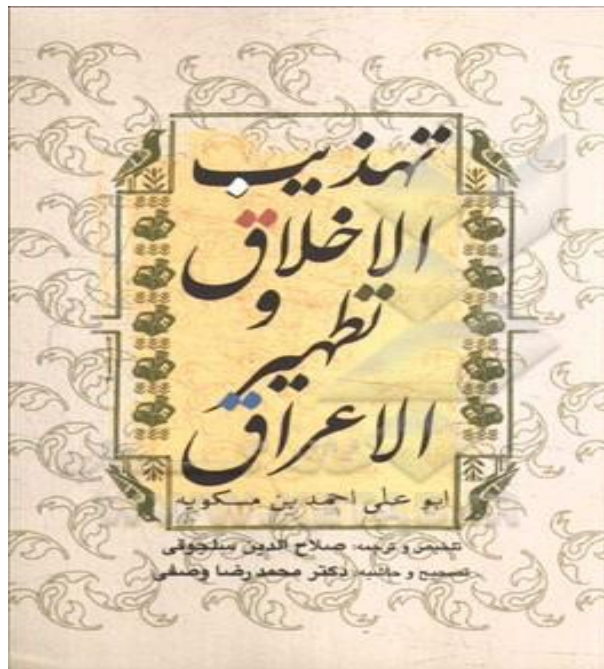 تهذیب
الاخلاق
و
تطهیر
الاعراق
ابو علی احمد بن مسکویه
تلخیص و ترجمه: صلاح الدین سلجوقی
تصحیح و حاشیه: دکتر محمدرضا وصفی